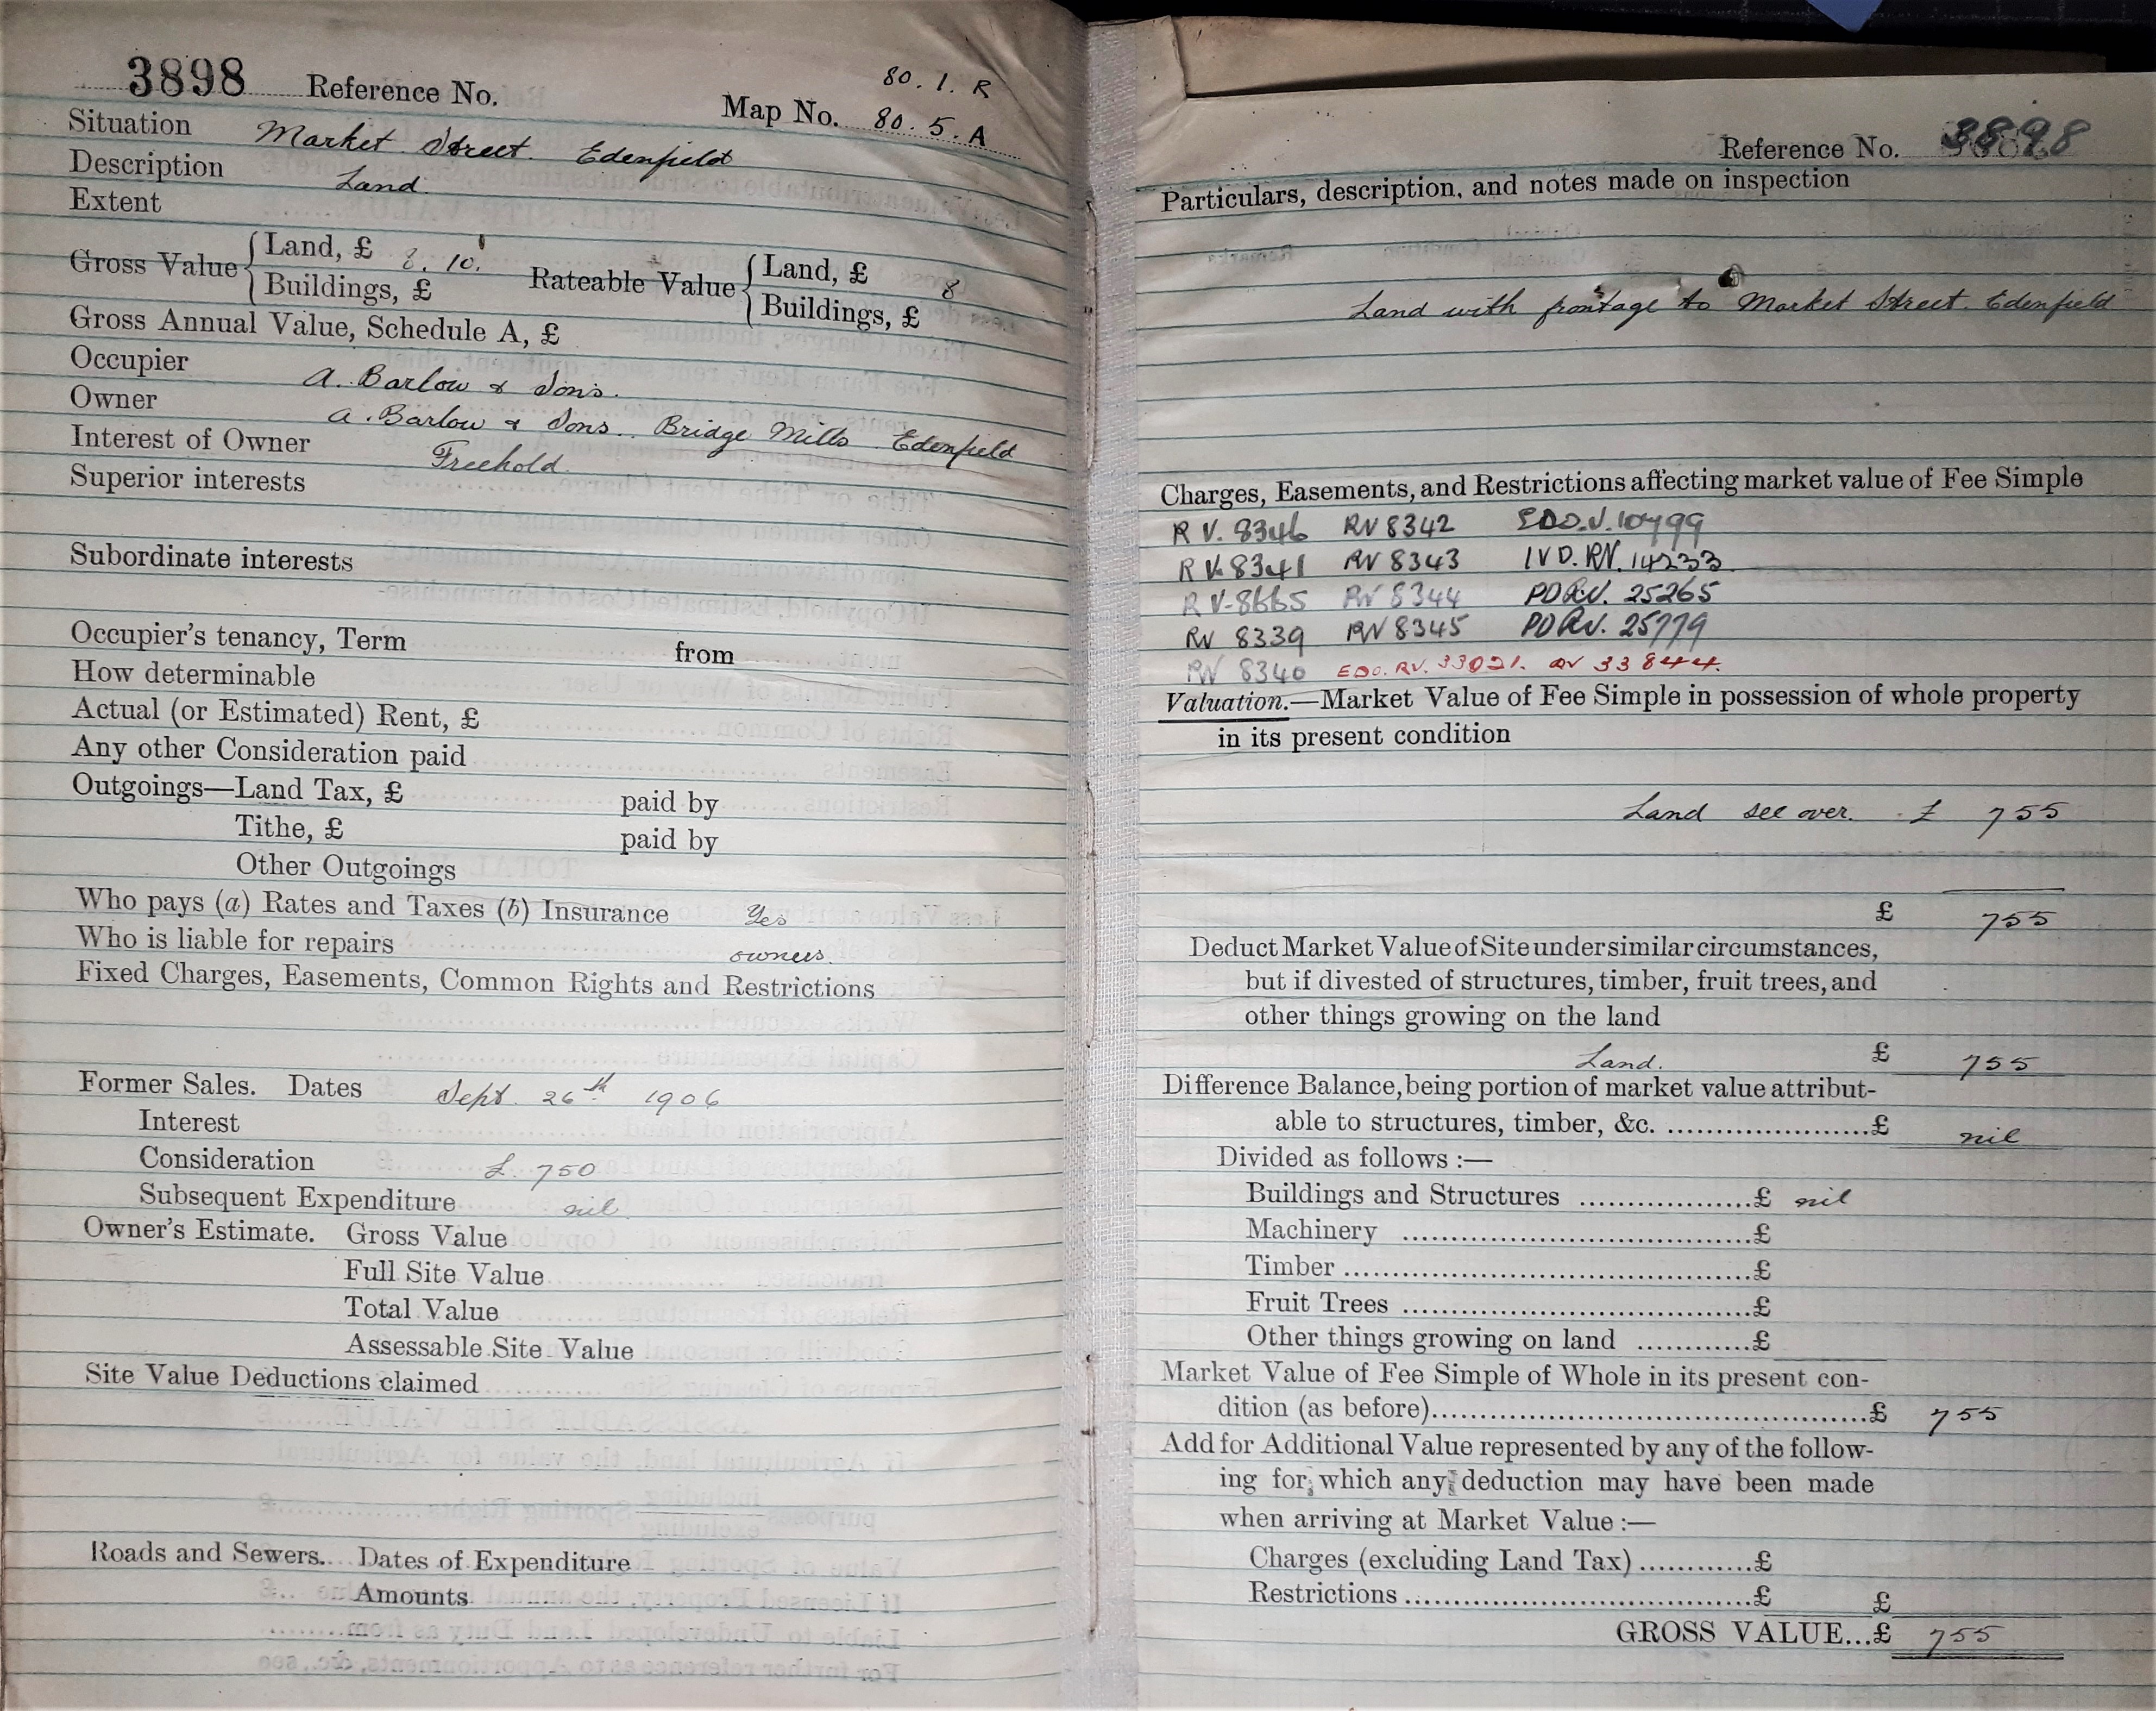 3898 Reference No.
80. 1. R
Map No. 80. 5. A
Situation Market Street. Edenfield
Description Land.
Extent
Gross Value { Land, £ 8. 10. Rateable Value { Land, £ 8
Buildings, £ Buildings, £
Gross Annual Value, Schedule A, £
Occupier A. Barlow & Sons.
Owner A. Barlow & Sons. Bridge Mills Edenfield
Interest of Owner Freehold
Superior interests
Subordinate interests
Occupier's tenancy, Term from
How determinable
Actual (or Estimated) Rent, £
Any other Consideration paid
Outgoings—Land Tax, £ paid by
Tithe, £ paid by
Other Outgoings
Who pays (a) Rates and Taxes (b) Insurance Yes
Who is liable for repairs owners.
Fixed Charges, Easements, Common Rights and Restrictions
Former Sales. Dates Sept. 26th 1906
Interest
Consideration £ 750
Subsequent Expenditure nil
Owner's Estimate. Gross Value
Full Site Value
Total Value
Assessable Site Value
Site Value Deductions claimed
Roads and Sewers. Dates of Expenditure
Amounts
Reference No. 3898
Particulars, description, and notes made on inspection
Land with frontage to Market Street. Edenfield
Charges, Easements, and Restrictions affecting market value of Fee Simple
RV. 8346 RV 8342 10799
RV. 8341 RV 8343 IVD. RV. 14233
RV-8665 RV 8344 PDRV. 25265
RV 8339 RV 8345 PDRV. 25779
RV 8340 EDO. RV. 33021. RV 33844.
Valuation.—Market Value of Fee Simple in possession of whole property
in its present condition
Land see over. £ 755
£ 755
Deduct Market Value of Site under similar circumstances,
but if divested of structures, timber, fruit trees, and
other things growing on the land
Land. £ 755
Difference Balance, being portion of market value attribut-
able to structures, timber, &c. ......................£ nil
Divided as follows :—
Buildings and Structures ...................£ nil
Machinery ......................................£
Timber ............................................£
Fruit Trees ......................................£
Other things growing on land ............£
Market Value of Fee Simple of Whole in its present con-
dition (as before)................................................£ 755
Add for Additional Value represented by any of the follow-
ing for which any deduction may have been made
when arriving at Market Value :—
Charges (excluding Land Tax) ............£
Restrictions ......................................£ £
GROSS VALUE...£ 755